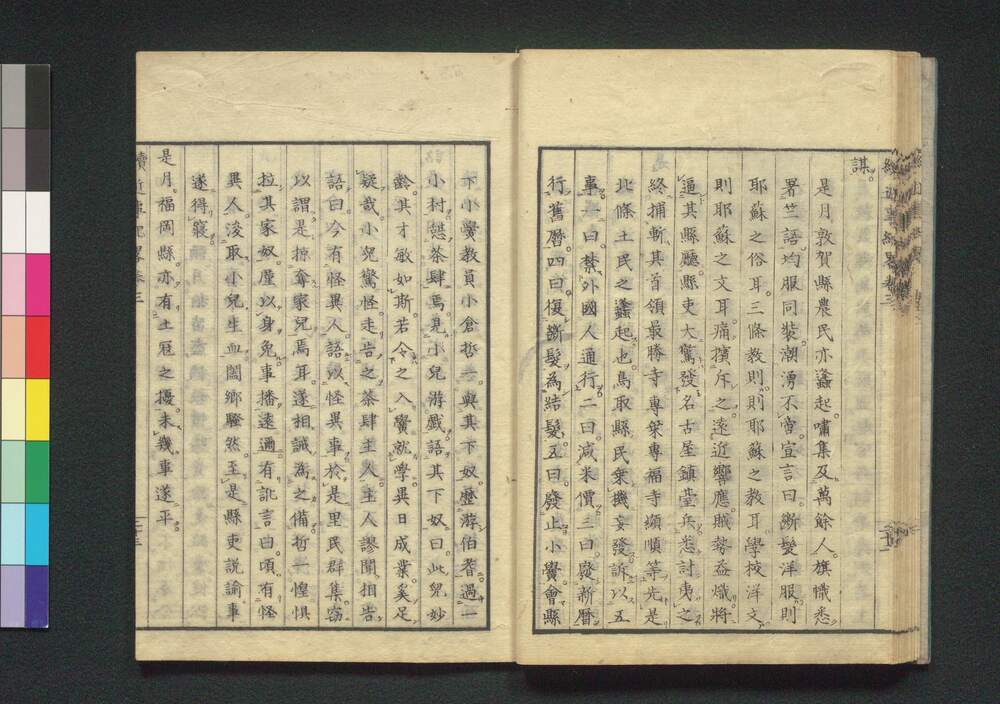 謀。
是月敦賀縣農民亦蠭起。嘯集及萬餘人。旗幟悉
署竺語。均服同裝。潮湧不啻。宣言曰。斷髮洋服。則
耶蘇之俗耳。三條教則。則耶蘇之教耳。學校洋文。
則耶蘇之文耳。痛擯斥之。遠近響應。賊勢益熾。將
逼其縣廳。縣吏大驚。發名古屋鎮臺兵。悉討夷之。
終捕斬其首領最勝寺專乘專福寺顯順等。先是
北條土民之蠭起也。鳥取縣民衆機妄發。訴以五
事。一曰。禁外國人通行。二曰。減米價。三曰。廢新曆
行舊曆。四曰。復斷髮為結髮。五曰。廢止小黌。會縣
下小黌教員小倉哲一與其下奴。歷游伯耆。過一
小村。憩茶肆焉。見小兒游戲。語其下奴曰。此兒妙
齡。其才敏如斯。若令之入黌就學。異日成業奚足
疑哉。小兒驚怪。走告之茶肆主人。主人謬聞。相告
語曰。今有怪異人。語以怪異事。於是里民群集。竊
以謂是掠奪家兒焉耳。遂相誡為之備。哲一惶惧
拉其家奴。厪以身免。事播遠邇。有訛言曰。頃有怪
異人。浚取小兒生血。闔鄉騷然。至是縣吏說諭。事
遂得寢。
是月。福岡縣亦有土冦之擾。未幾事遂平。
續近事紀略卷三